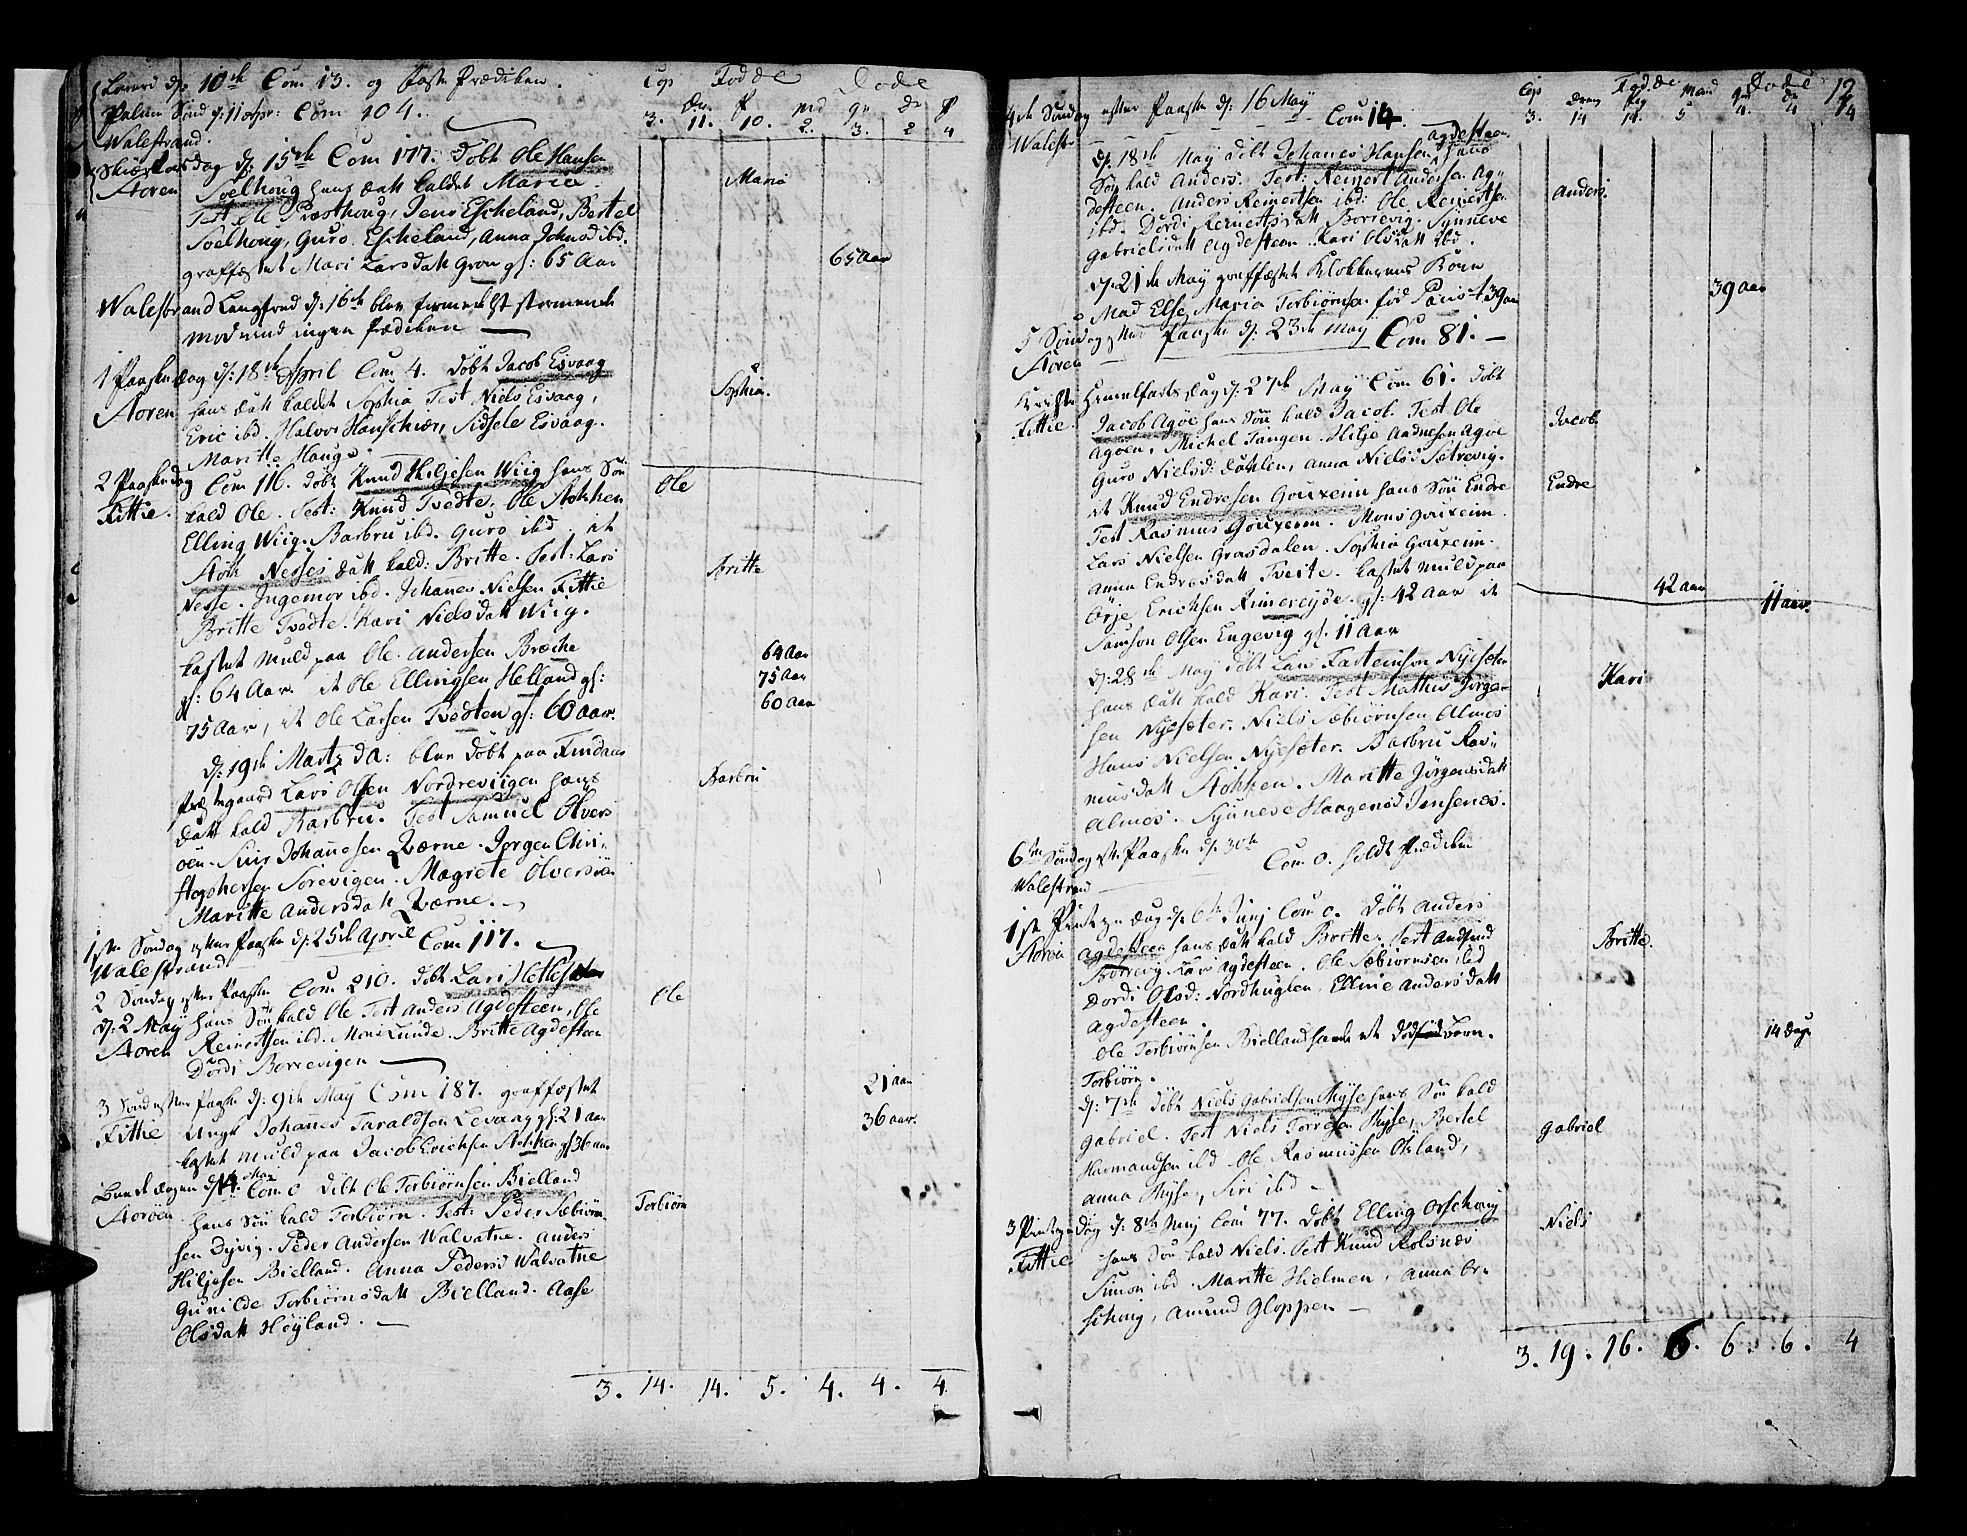 Løverd d: 10de Com 13. og faste Prædiken.
Palm Sønd d: 11 Apr: Com 104.
Walestrand.
Skiærtorsdag d: 15de Com 177. Døbt Ole Hansen
Storen Soelhoug hans datt kaldet Maria.
Test Ole Præsthoug, Jens Escheland, Bertel
Soelhoug, Guro Escheland, Anna Johnsd ibd.
graffæstet Mari Larsdatt Grov gl: 65 Aar
Walestrand Langfred d: 16de blev formedelst stormende
modvind ingen Prædiken
1 Paaskedag d: 18de April Com 4. Døbt Jacob Esvaag
Storen hans datt kaldet Sophia Test Niels Esvaag,
Eric ibd. Halvor Hanschiær, Sidsele Esvaag.
Maritte Haug.
2 Paaskedag Com 116. døbt Knud Hiljesen Wiig hans Søn
Fittie. kald Ole. Test: Knud Tvedte, Ole Stokken
Elling Wiig. Barbru ibd. Guro ibd. it
Nesses datt kald: Britte. Test: Lars
Nesse. Ingemor ibd. Johannes Nielsen Fittie
Britte Tvedte. Kari Nielsdatt Wiig.
kastet Muld paa Ole Andersen Bræche
gl: 64 Aar. it Ole Ellingsen Helland gl:
75 Aar, it Ole Larsen Tvedten gl: 60 aar.
d: 19de Martz da: blev døbt paa Findaas
Præstegaard Lars Olsen Nordreviigen hans
datt kald Barbru. Test Samuel Olvers
øen. Siur Johannesen Qværne. Jørgen Chri-
stophersen Sørevigen. Magrete Olversøen
Maritte Andersdatt Qværne.
1ste Søndag efter Paaske d: 25de April Com 117.
Walestrand
2 Søndag efter Paaske Com 210. døbt Lars Hetlesæter
d: 2 May hans Søn kald Ole Test Anders Agdesteen, Ole
Storen Reinertsen ibd. Mons Lunde. Britte Agdesteen
Dordi Borrevigen
3 Sønd efter Paaske d: 9de May Com 187. graffæstet
Fittie Ungk Johannes Taraldsen Levaag gl: 21 aar
kastet Muld paa Jacob Erichsen Stokken gl 36 aar
Bededagen d 14 May Com 0 Døbt Ole Torbiørnsen Bielland
Storøen hans Søn kald Torbiørn. Test: Peder Sæbiørn
sen Dyvig. Peder Andersen Walvatne. Anders
Hiljesen Bielland. Anna Pedersd Walvatne
Gunilde Torbiørnsdatt Bielland. Aase
Olsdatt Høyland.
Cop Fødde Døde
3. 11. 10. 2. 3. 2 4
Maria
65 Aar
Sophia.
Ole
Britte
64 Aar
75 Aar
60 Aar
Barbru
Ole
21 aar
36 aar.
Torbiørn
3. 14. 14. 5. 4. 4. 4
4de Søndag efter Paaske d: 16 May Com 14
Walestr
d: 18de May døbt Johannes Hansen Agdesteen hans
Søn kald Anders. Test: Reinert Andersen Ag-
desteen. Anders Reinertsen ibd: Ole Reinertsen
ibd. Dordi Reinertsdatt Borrevig. Synneve
Gabrielsdatt Agdesteen. Kari Olsdatt ibd.
d: 21de May graffæstet Klokkerens Kone
Mad Else Maria Torbiørnsen fød Paris 39 aar
5 Søndag efter Paaske d: 23de May Com 81.
Storen
Christi Himmelfarts dag d: 27de May Com 61. døbt
Fittie. Jacob Agøe hans Søn kald Jacob. Test Ole
Agøen, Michel Tangen. Hilje Andnesen Agøe
Guro Nielsd: Dahlen, Anna Nielsd Sætrevig.
it Knud Endresen Gouxeim hans Søn Endre
Test Rasmus Gouxeim. Mons Gouxeim.
Lars Nielsen Grasdalen. Sophia Gouxeim.
Anna Endresdatt Tveite. kastet Muld paa
Ørje Erichsen Rimereyde. gl: 42 Aar it
Simson Olsen Engevig gl: 11 Aar
d: 28de May døbt Lars Fasteinsen Nyesæter
hans datt kald Kari. Test Mathis Jørgen-
sen Nyesæter. Niels Sæbiørnsen Almos
Hans Nielsen Nyesæter. Barbru Ras-
musdatt Stokken. Maritte Jørgensdatt
Almos. Synneve Haagensd Jensenes.
6te Søndag efter Paaske d: 30te Com 0. holdt Prædiken
Walestrand
1ste Pintze dag d: 6te Junj Com 0. Døbt Anders
Storen Agdesteen hans datt kald Britte. Test Amfind
Borrevig Lars Agdesteen. Ole Sæbiørnsen ibd
Dordi Olsd: Nordhuglen, Elline Andersdatt
Agdesteen.
Ole Torbiørnsen Bielland hans et død Barn.
Torbiørn.
d: 7de Døbt Niels Gabrielsen Thyse hans Søn kald
Gabriel. Test Niels Torresen Thyse, Bertel
Harmandsen ibd Ole Rasmussen Øcland,
Anna Thyse, Siri ibd
3 Pintze Dag d: 8de Junj Com 77. Døbt Elling Orschoug
Fittie hans Søn kald Niels. Test Knud Rolsnæs
Simon ibd. Maritte Hielmen, Anna Or-
schoug, Amund Gloppen
Cop Fødde Døde 12
3. 14 14. 5 4. 4 4
Anders.
39 aar
Jacob.
Endre
42 aar
11 aar.
Kari
Britte.
14 Dage
Gabriel
Niels
3. 19. 16. 6. 6. 6. 4